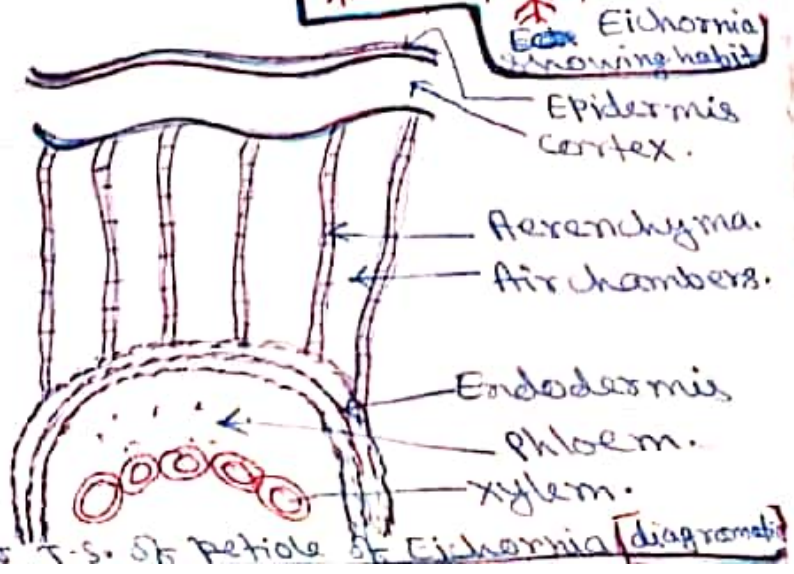 Eichornia
showing habit
Epidermis
cortex.
Aerenchyma.
Air chambers.
Endodermis
Phloem.
xylem.
T.S. of petiole of Eichornia [diagramatic